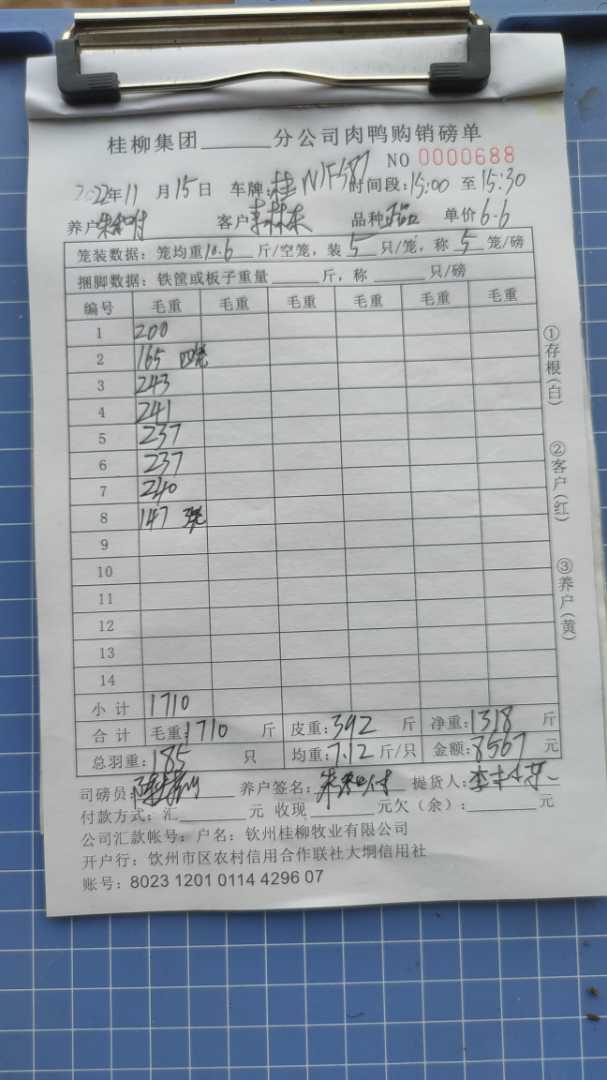 桂柳集团______分公司肉鸭购销磅单
NO 0000688
2022年11月15日 车牌:桂 时间段:15:00 至15:30
养户 客户 品种 单价6.6
笼装数据：笼均重10.6斤/空笼，装5只/笼，称5笼/磅
捆脚数据：铁筐或板子重量______斤，称______只/磅
编号 毛重 毛重 毛重 毛重 毛重 毛重
1 200
2 165 四笼
3 243
4 241
5 237
6 237
7 240
8 147
9
10
11
12
13
14
小计 1710
合计 毛重:1710斤 皮重:392斤 净重:1318斤
总羽重:185只 均重:7.12斤/只 金额:8567元
司磅员: 养户签名: 提货人:
付款方式：汇______元 收现______元欠（余）:______元
公司汇款帐号：户名：钦州桂柳牧业有限公司
开户行：钦州市区农村信用合作联社大垌信用社
账号：8023 1201 0114 4296 07
①存根(白)
②客户(红)
③养户(黄)